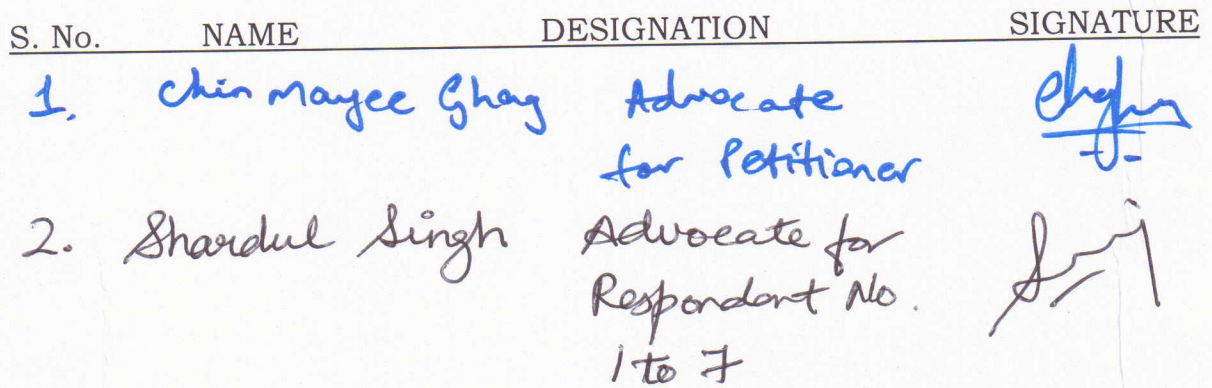 S. No. NAME DESIGNATION SIGNATURE
1. Chinmayee Ghag Advocate
for Petitioner
2. Shardul Singh Advocate for
Respondant No.
1 to 7